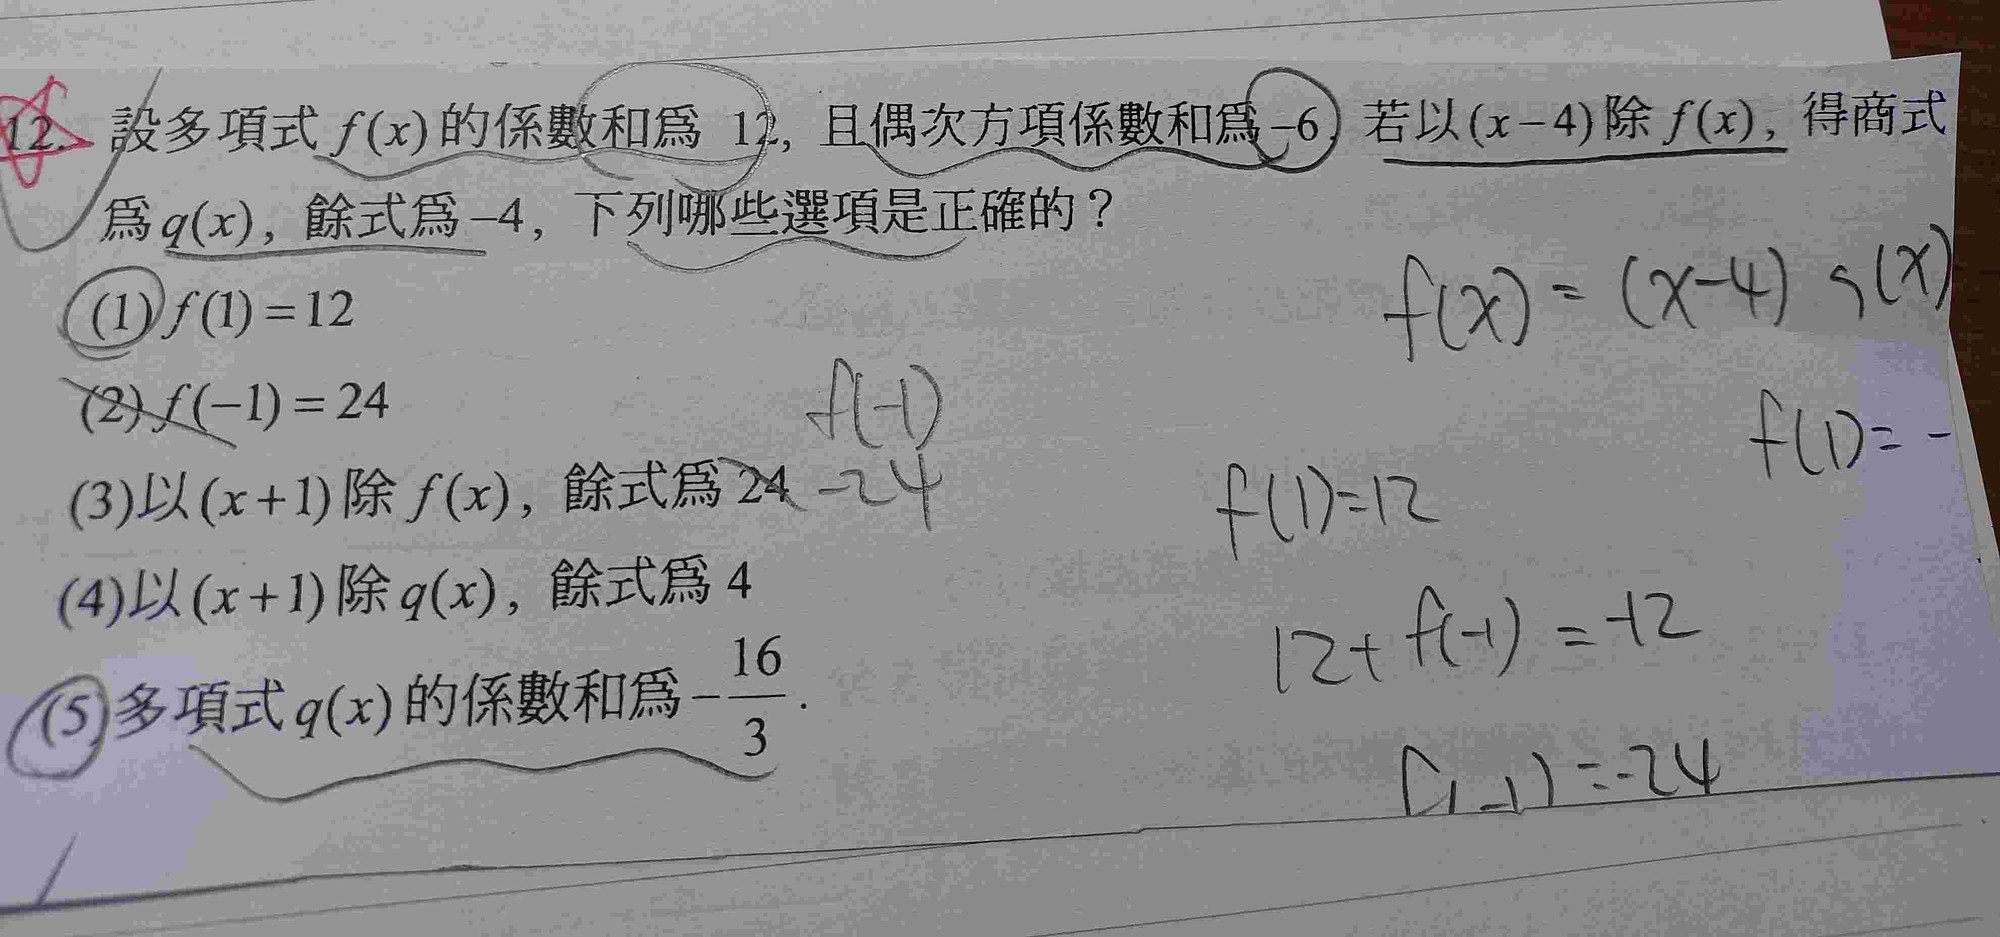 12. 設多項式 f(x) 的係數和爲 12, 且偶次方項係數和爲 -6, 若以 (x-4) 除 f(x), 得商式
爲 q(x), 餘式爲 -4, 下列哪些選項是正確的？
f(x) = (x-4) q(x)
(1) f(1) = 12
(2) f(-1) = 24
f(-1)
f(1) = -
(3) 以 (x+1) 除 f(x), 餘式爲 24 -24
f(1)=12
(4) 以 (x+1) 除 q(x), 餘式爲 4
12+ f(-1) = -12
(5) 多項式 q(x) 的係數和爲 -16/3.
f(-1) = -24